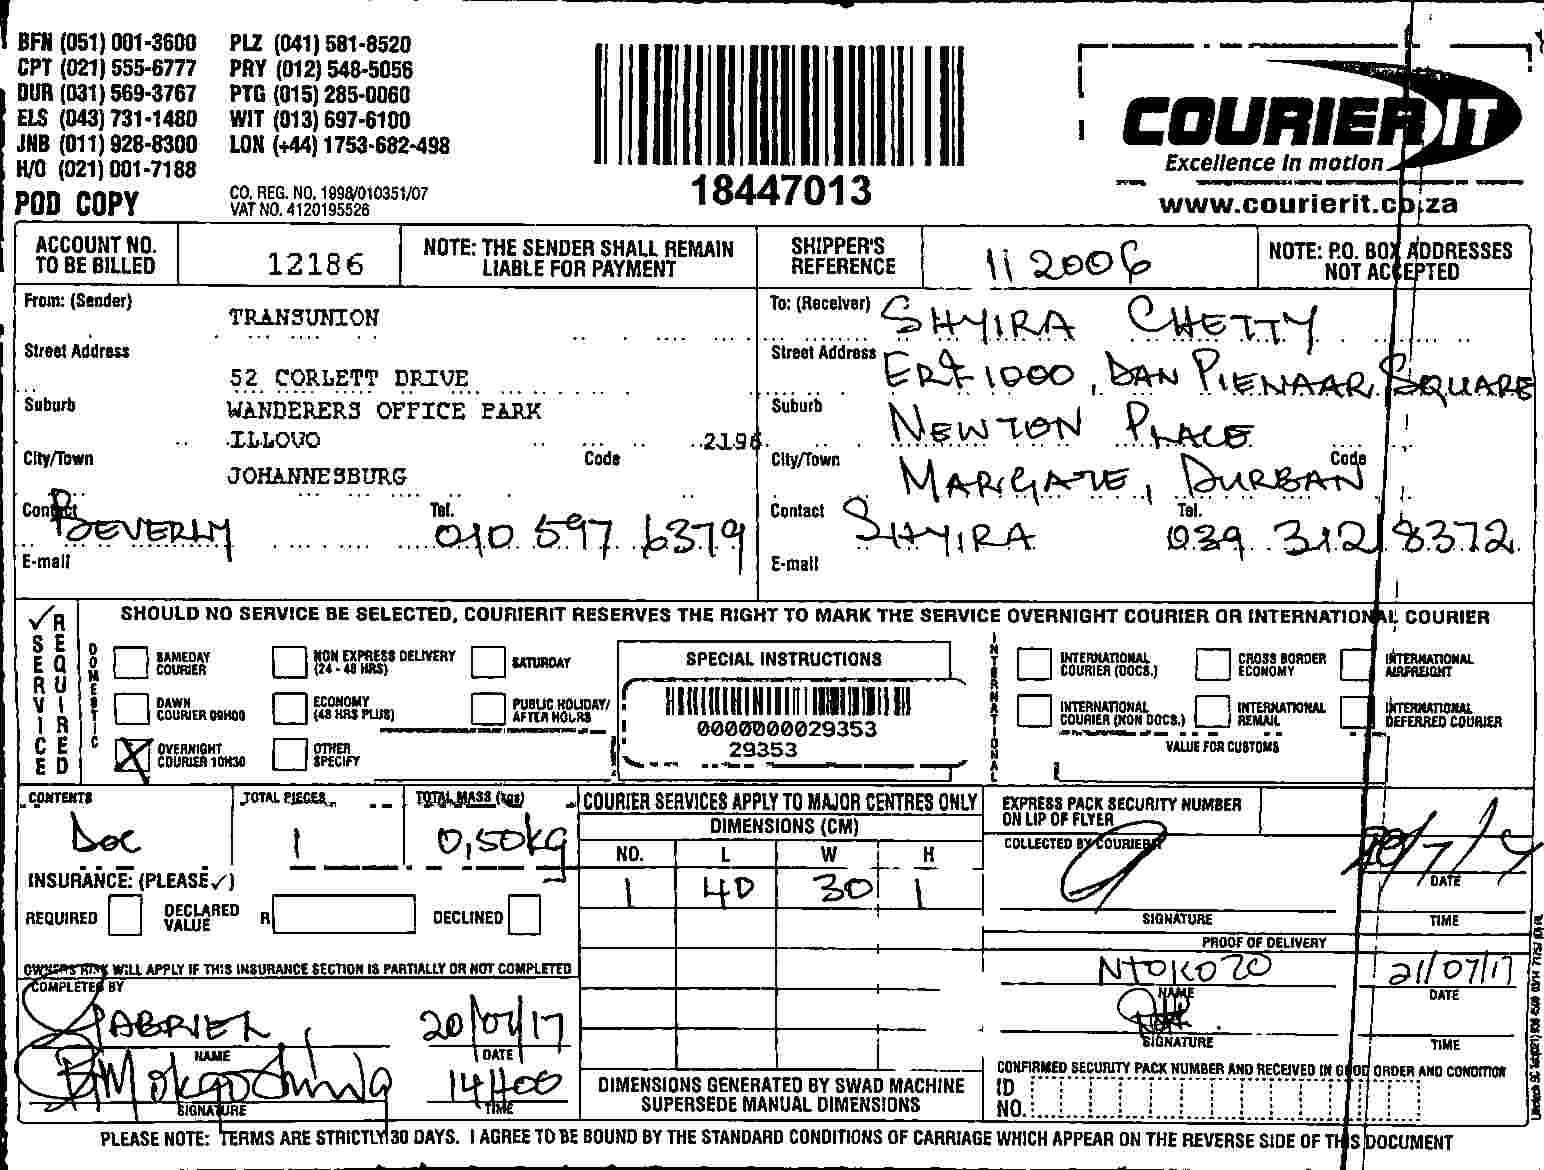 BFN (051) 001-3600 PLZ (041) 581-8520
CPT (021) 555-6777 PRY (012) 548-5056
DUR (031) 569-3767 PTG (015) 285-0060
ELS (043) 731-1480 WIT (013) 697-6100
JNB (011) 928-8300 LON (+44) 1753-682-498
H/O (021) 001-7188
POD COPY
CO. REG. NO. 1998/010351/07
VAT NO. 4120195526
18447013
COURIER IT
Excellence in motion
www.courierit.co.za
ACCOUNT NO. TO BE BILLED
12186
NOTE: THE SENDER SHALL REMAIN LIABLE FOR PAYMENT
SHIPPER'S REFERENCE
112006
NOTE: P.O. BOX ADDRESSES NOT ACCEPTED
From: (Sender)
TRANSUNION
Street Address
52 CORLETT DRIVE
Suburb
WANDERERS OFFICE PARK
ILLOVO 2196
City/Town Code
JOHANNESBURG
Contact BEVERLY Tel. 010 597 6379
E-mail
To: (Receiver) SHYIRA CHETTY
Street Address ERF 1000, DAN PIENAAR SQUARE
Suburb NEWTON PLACE
City/Town MARGATE, DURBAN Code
Contact SHYIRA Tel. 039 312 8372
E-mail
SERVICE REQUIRED
SHOULD NO SERVICE BE SELECTED, COURIERIT RESERVES THE RIGHT TO MARK THE SERVICE OVERNIGHT COURIER OR INTERNATIONAL COURIER
DOMESTIC
SAMEDAY COURIER
NON EXPRESS DELIVERY (24 - 48 HRS)
SATURDAY
DAWN COURIER 09H00
ECONOMY (48 HRS PLUS)
PUBLIC HOLIDAY/ AFTER HOURS
OVERNIGHT COURIER 10H30
OTHER SPECIFY
SPECIAL INSTRUCTIONS
0000000029353
29353
INTERNATIONAL
INTERNATIONAL COURIER (DOCS.)
CROSS BORDER ECONOMY
INTERNATIONAL AIRFREIGHT
INTERNATIONAL COURIER (NON DOCS.)
INTERNATIONAL REMAIL
INTERNATIONAL DEFERRED COURIER
VALUE FOR CUSTOMS
CONTENTS
Doc
TOTAL PIECES
1
TOTAL MASS (kgs)
0,50kg
INSURANCE: (PLEASE ✓)
REQUIRED
DECLARED VALUE R
DECLINED
OWNERS RISK WILL APPLY IF THIS INSURANCE SECTION IS PARTIALLY OR NOT COMPLETED
COMPLETED BY
GABRIEL 20/07/17
NAME DATE
14H00
SIGNATURE TIME
COURIER SERVICES APPLY TO MAJOR CENTRES ONLY
DIMENSIONS (CM)
NO. L W H
1 40 30 1
DIMENSIONS GENERATED BY SWAD MACHINE SUPERSEDE MANUAL DIMENSIONS
EXPRESS PACK SECURITY NUMBER ON LIP OF FLYER
COLLECTED BY COURIER
DATE
SIGNATURE TIME
PROOF OF DELIVERY
NTOKOZO 21/07/17
NAME DATE
SIGNATURE TIME
CONFIRMED SECURITY PACK NUMBER AND RECEIVED IN GOOD ORDER AND CONDITION
ID NO.
PLEASE NOTE: TERMS ARE STRICTLY 30 DAYS. I AGREE TO BE BOUND BY THE STANDARD CONDITIONS OF CARRIAGE WHICH APPEAR ON THE REVERSE SIDE OF THIS DOCUMENT